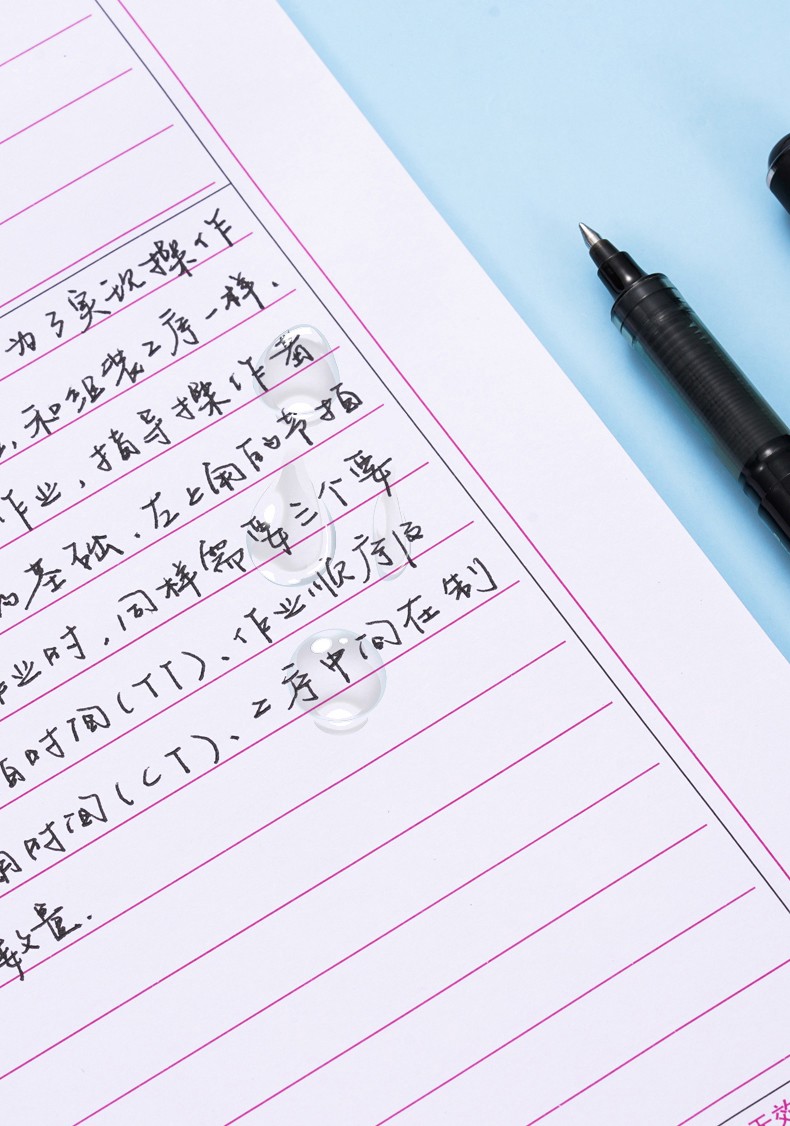 为了实现操作
,和组装工序一样.
作业,指导操作者
的基础.左上角的节拍
作业时,同样需要三个要
时间(TT)、作业顺序
用时间(CT)、工序中间在制
数量.
无效